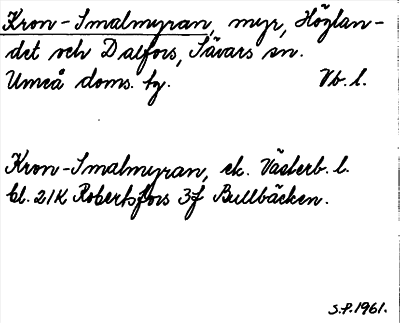 Kron-Smalmyran, myr, Höglan-
det och Dalfors, Sävars sn.
Umeå doms. tg. Vb. l.
Kron-Smalmyran, ek. Västerb. l.
bl. 21K Robertsfors 3f Bullbäcken.
S.P. 1961.